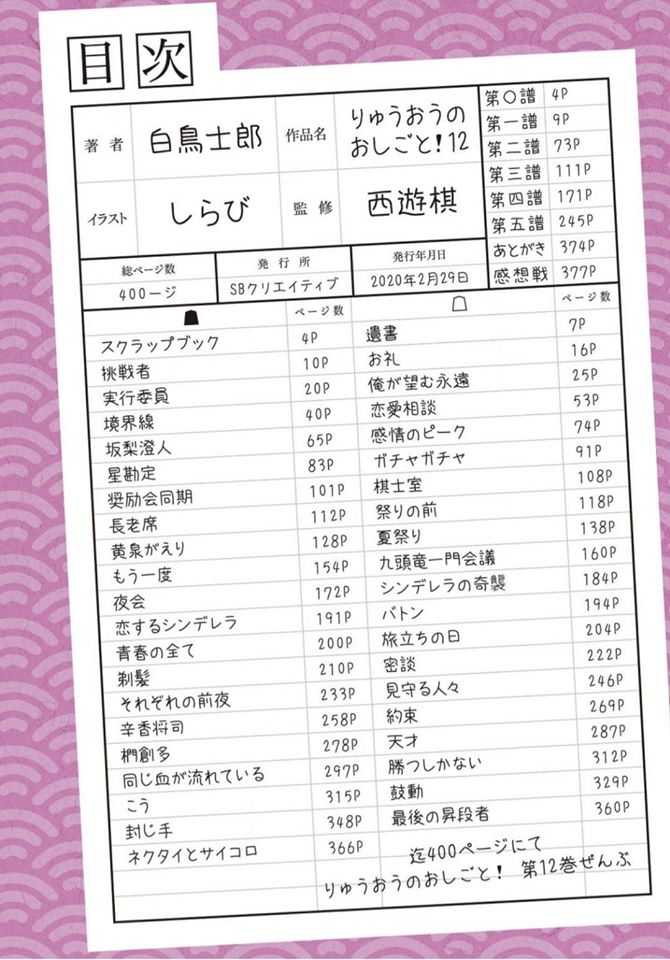 目次
著者 白鳥士郎 作品名 りゅうおうの
おしごと!12
イラスト しらび 監修 西遊棋
総ページ数 発行所 発行年月日
400ージ SBクリエイティブ 2020年2月29日
第〇譜 4P
第一譜 9P
第二譜 73P
第三譜 111P
第四譜 171P
第五譜 245P
あとがき 374P
感想戦 377P
ページ数
スクラップブック 4P
挑戦者 10P
実行委員 20P
境界線 40P
坂梨澄人 65P
星勘定 83P
奨励会同期 101P
長老席 112P
黄泉がえり 128P
もう一度 154P
夜会 172P
恋するシンデレラ 191P
青春の全て 200P
剃髪 210P
それぞれの前夜 233P
辛香将司 258P
椚創多 278P
同じ血が流れている 297P
こう 315P
封じ手 348P
ネクタイとサイコロ 366P
ページ数
遺書 7P
お礼 16P
俺が望む永遠 25P
恋愛相談 53P
感情のピーク 74P
ガチャガチャ 91P
棋士室 108P
祭りの前 118P
夏祭り 138P
九頭竜一門会議 160P
シンデレラの奇襲 184P
バトン 194P
旅立ちの日 204P
密談 222P
見守る人々 246P
約束 269P
天才 287P
勝つしかない 312P
鼓動 329P
最後の昇段者 360P
迄400ページにて
りゅうおうのおしごと! 第12巻ぜんぶ